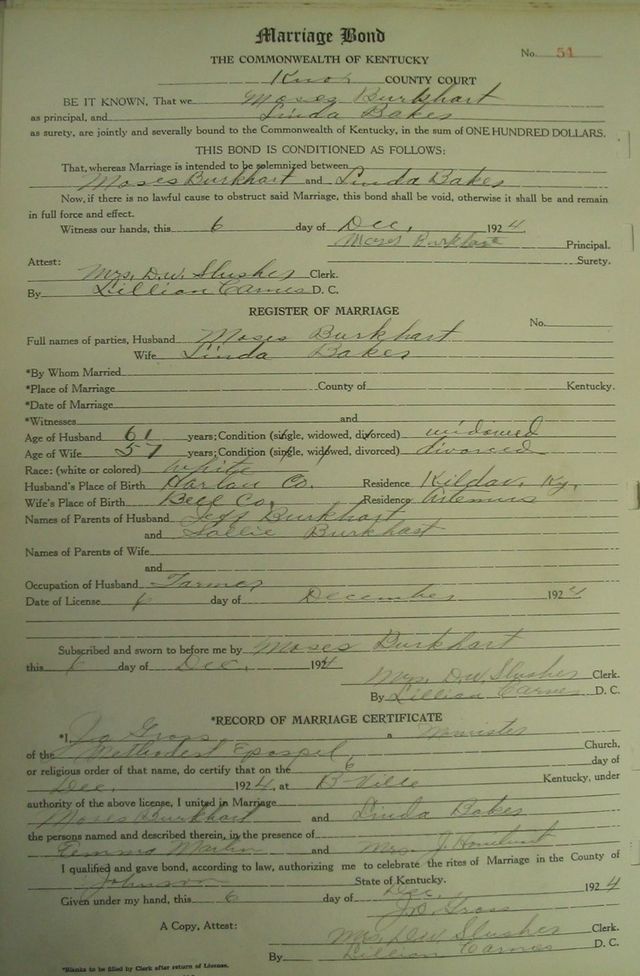 Marriage Bond
No. 51
THE COMMONWEALTH OF KENTUCKY
Knox COUNTY COURT
BE IT KNOWN, That we Moses Burkhart
as principal, and Linda Bakes
as surety, are jointly and severally bound to the Commonwealth of Kentucky, in the sum of ONE HUNDRED DOLLARS.
THIS BOND IS CONDITIONED AS FOLLOWS:
That, whereas Marriage is intended to be solemnized between
Moses Burkhart and Linda Bakes
Now, if there is no lawful cause to obstruct said Marriage, this bond shall be void, otherwise it shall be and remain
in full force and effect.
Witness our hands, this 6 day of Dec, 1924
Moses Burkhart Principal.
Surety.
Attest:
Mrs. D.W. Slusher Clerk.
By Lillian Carnes D. C.
REGISTER OF MARRIAGE
No.
Full names of parties, Husband Moses Burkhart
Wife Linda Bakes
*By Whom Married
*Place of Marriage County of Kentucky.
*Date of Marriage
*Witnesses and
Age of Husband 61 years; Condition (single, widowed, divorced) widowed
Age of Wife 57 years; Condition (single, widowed, divorced) divorced
Race: (white or colored) White
Husband's Place of Birth Harlan Co. Residence Kildav, Ky.
Wife's Place of Birth Bell Co. Residence Artemus
Names of Parents of Husband Jeff Burkhart
and Sallie Burkhart
Names of Parents of Wife
and
Occupation of Husband Farmer
Date of License 6 day of December 1924
Subscribed and sworn to before me by Moses Burkhart
this 6 day of Dec. 1924
Mrs. D.W. Slusher Clerk.
By Lillian Carnes D. C.
*RECORD OF MARRIAGE CERTIFICATE
*I, Jo Gross a Minister
of the Methodist Epospel Church,
or religious order of that name, do certify that on the 6 day of
Dec. 1924, at B-Ville Kentucky, under
authority of the above license, I united in Marriage
Moses Burkhart and Linda Bakes
the persons named and described therein, in the presence of
Emma Martin and Mrs. J.
I qualified and gave bond, according to law, authorizing me to celebrate the rites of Marriage in the County of
Johnson State of Kentucky.
Given under my hand, this 6 day of Dec. 1924
Jo Gross
A Copy, Attest: Mrs. D.W. Slusher Clerk.
By Lillian Carnes D. C.
*Blanks to be filled by Clerk after return of License.